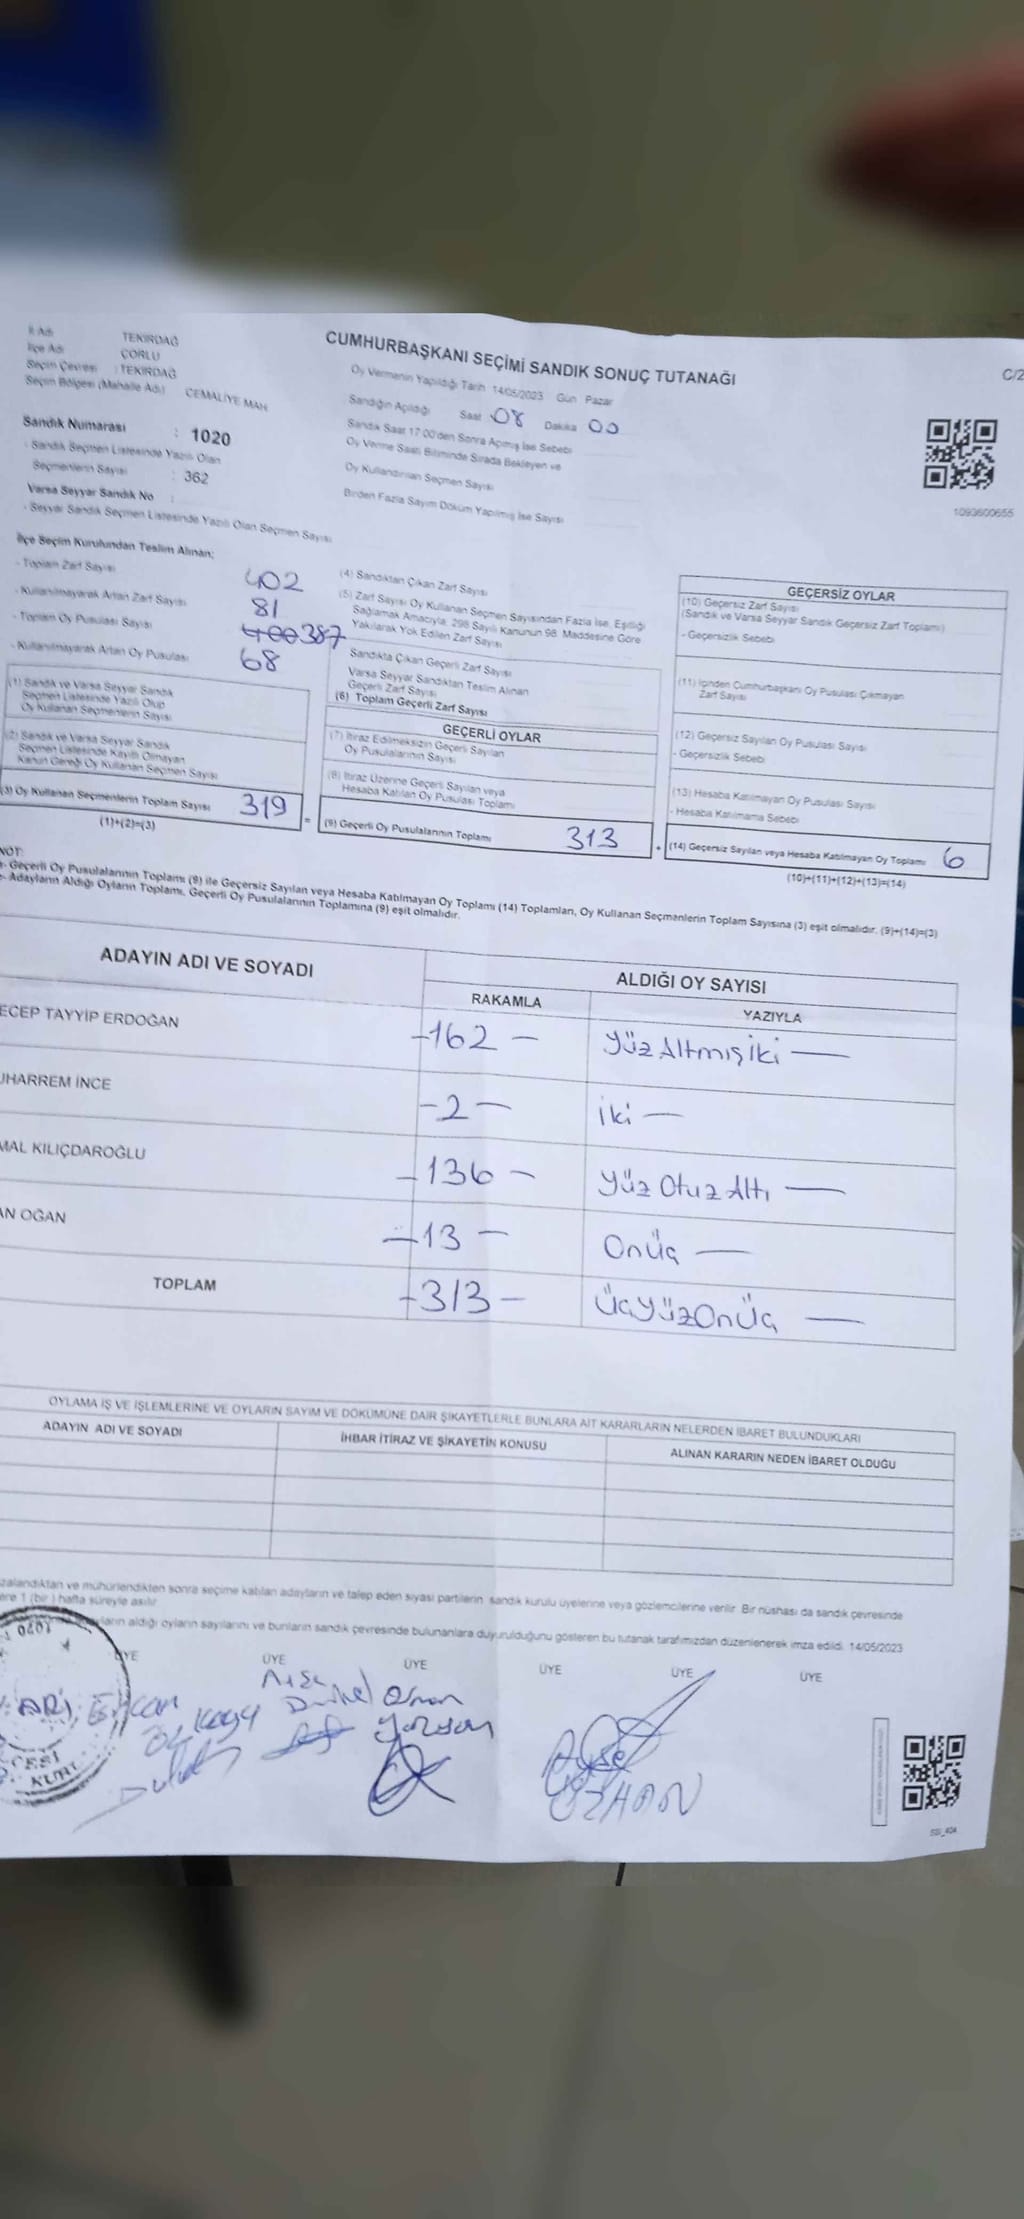 İl Adı TEKİRDAĞ
İlçe Adı ÇORLU
Seçim Çevresi : TEKİRDAĞ
Seçim Bölgesi (Mahalle Adı) CEMALİYE MAH
Sandık Numarası : 1020
- Sandık Seçmen Listesinde Yazılı Olan
Seçmenlerin Sayısı : 362
Varsa Seyyar Sandık No :
- Seyyar Sandık Seçmen Listesinde Yazılı Olan Seçmen Sayısı
CUMHURBAŞKANI SEÇİMİ SANDIK SONUÇ TUTANAĞI
C/2
Oy Vermenin Yapıldığı Tarih 14/05/2023 Gün Pazar
Sandığın Açıldığı Saat 08 Dakika 00
Sandık Saat 17:00'den Sonra Açmış İse Sebebi
Oy Verme Saati Bitiminde Sırada Bekleyen ve
Oy Kullandırılan Seçmen Sayısı
Birden Fazla Sayım Döküm Yapılmış İse Sayısı
1093600655
İlçe Seçim Kurulundan Teslim Alınan;
- Toplam Zarf Sayısı 402
- Kullanılmayarak Artan Zarf Sayısı 81
- Toplam Oy Pusulası Sayısı 400 387
- Kullanılmayarak Artan Oy Pusulası 68
(1) Sandık ve Varsa Seyyar Sandık
Seçmen Listesinde Yazılı Olup
Oy Kullanan Seçmenlerin Sayısı
(2) Sandık ve Varsa Seyyar Sandık
Seçmen Listesinde Kayıtlı Olmayan
Kanun Gereği Oy Kullanan Seçmen Sayısı
(3) Oy Kullanan Seçmenlerin Toplam Sayısı 319
(1)+(2)=(3)
(4) Sandıktan Çıkan Zarf Sayısı
(5) Zarf Sayısı Oy Kullanan Seçmen Sayısından Fazla İse, Eşitliği
Sağlamak Amacıyla, 298 Sayılı Kanunun 98. Maddesine Göre
Yakılarak Yok Edilen Zarf Sayısı
Sandıkta Çıkan Geçerli Zarf Sayısı
Varsa Seyyar Sandıktan Teslim Alınan
Geçerli Zarf Sayısı
(6) Toplam Geçerli Zarf Sayısı
GEÇERLİ OYLAR
(7) İtiraz Edilmeksizin Geçerli Sayılan
Oy Pusulalarının Sayısı
(8) İtiraz Üzerine Geçerli Sayılan veya
Hesaba Katılan Oy Pusulası Toplamı
= (9) Geçerli Oy Pusulalarının Toplamı 313
GEÇERSİZ OYLAR
(10) Geçersiz Zarf Sayısı
(Sandık ve Varsa Seyyar Sandık Geçersiz Zarf Toplamı)
- Geçersizlik Sebebi
(11) İçinden Cumhurbaşkanı Oy Pusulası Çıkmayan
Zarf Sayısı
(12) Geçersiz Sayılan Oy Pusulası Sayısı
- Geçersizlik Sebebi
(13) Hesaba Katılmayan Oy Pusulası Sayısı
- Hesaba Katılmama Sebebi
+ (14) Geçersiz Sayılan veya Hesaba Katılmayan Oy Toplamı 6
(10)+(11)+(12)+(13)=(14)
NOT:
- Geçerli Oy Pusulalarının Toplamı (9) ile Geçersiz Sayılan veya Hesaba Katılmayan Oy Toplamı (14) Toplamları, Oy Kullanan Seçmenlerin Toplam Sayısına (3) eşit olmalıdır. (9)+(14)=(3)
- Adayların Aldığı Oyların Toplamı, Geçerli Oy Pusulalarının Toplamına (9) eşit olmalıdır.
ADAYIN ADI VE SOYADI ALDIĞI OY SAYISI
RAKAMLA YAZIYLA
ECEP TAYYİP ERDOĞAN -162- Yüz Altmış İki —
UHARREM İNCE -2- İki —
MAL KILIÇDAROĞLU -136- Yüz Otuz Altı —
AN OĞAN -13- Onüç —
TOPLAM -313- ÜçYüzOnÜç —
OYLAMA İŞ VE İŞLEMLERİNE VE OYLARIN SAYIM VE DÖKÜMÜNE DAİR ŞİKAYETLERLE BUNLARA AİT KARARLARIN NELERDEN İBARET BULUNDUKLARI
ADAYIN ADI VE SOYADI İHBAR İTİRAZ VE ŞİKAYETİN KONUSU ALINAN KARARIN NEDEN İBARET OLDUĞU
zalandıktan ve mühürlendikten sonra seçime katılan adayların ve talep eden siyasi partilerin sandık kurulu üyelerine veya gözlemcilerine verilir. Bir nüshası da sandık çevresinde
ere 1 (bir) hafta süreyle asılır
ların aldığı oyların sayılarını ve bunların sandık çevresinde bulunanlara duyurulduğunu gösteren bu tutanak tarafımızdan düzenlenerek imza edildi. 14/05/2023
ÜYE ÜYE ÜYE ÜYE ÜYE ÜYE
1020
Osman
Ayşe
ÖZHAN
ÇESİ
KURU